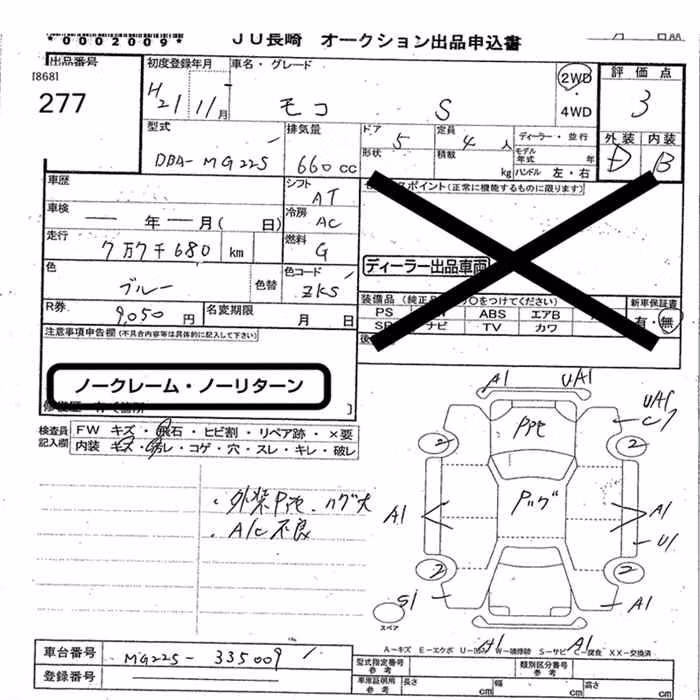 *0002009*
JU長崎 オークション出品申込書
出品番号
[868]
277
初度登録年月 車名・グレード
H21 11月 モコ S
2WD
・
4WD
評価点
3
型式 排気量 ドア 5 定員 4人 ディーラー・並行
形状 積載 kg モデル年式 年
ハンドル 左・右
外装 内装
D B
DBA-MG22S 660cc
車歴 シフト AT
車検 ― 年 ― 月( 日) 冷房 AC
走行 7万7千680 km 燃料 G
色 ブルー 色替 色コード ZKS
R券 9,050円 名変期限 月 日
スポイント (正常に機能するものに限ります)
ディーラー出品車両
装備品 (純正品 ○をつけてください) 新車保証書
PS ABS エアB 有・無
SR ナビ TV カワ
注意事項申告欄 (不具合内容等は具体的に記入して下さい)
ノークレーム・ノーリターン
検査員記入欄 FW キズ・飛石・ヒビ割・リペア跡・×要
内装 キズ・汚レ・コゲ・穴・スレ・キレ・破レ
・外装Pﾊｹﾞ大
・A/C不良
A1 UA1
UA1
C7
Pﾊｹﾞ
2 2
A1 A1
U1
2 2
S1 A1
スペア
A1 A1
A-キズ E-エクボ W-補修跡 S-サビ C-腐食 XX-交換済
車台番号 MG22S-335009
登録番号
型式指定番号 参考 類別区分番号 参考
車庫証明用 参考 長さ cm 幅 cm 高さ cm